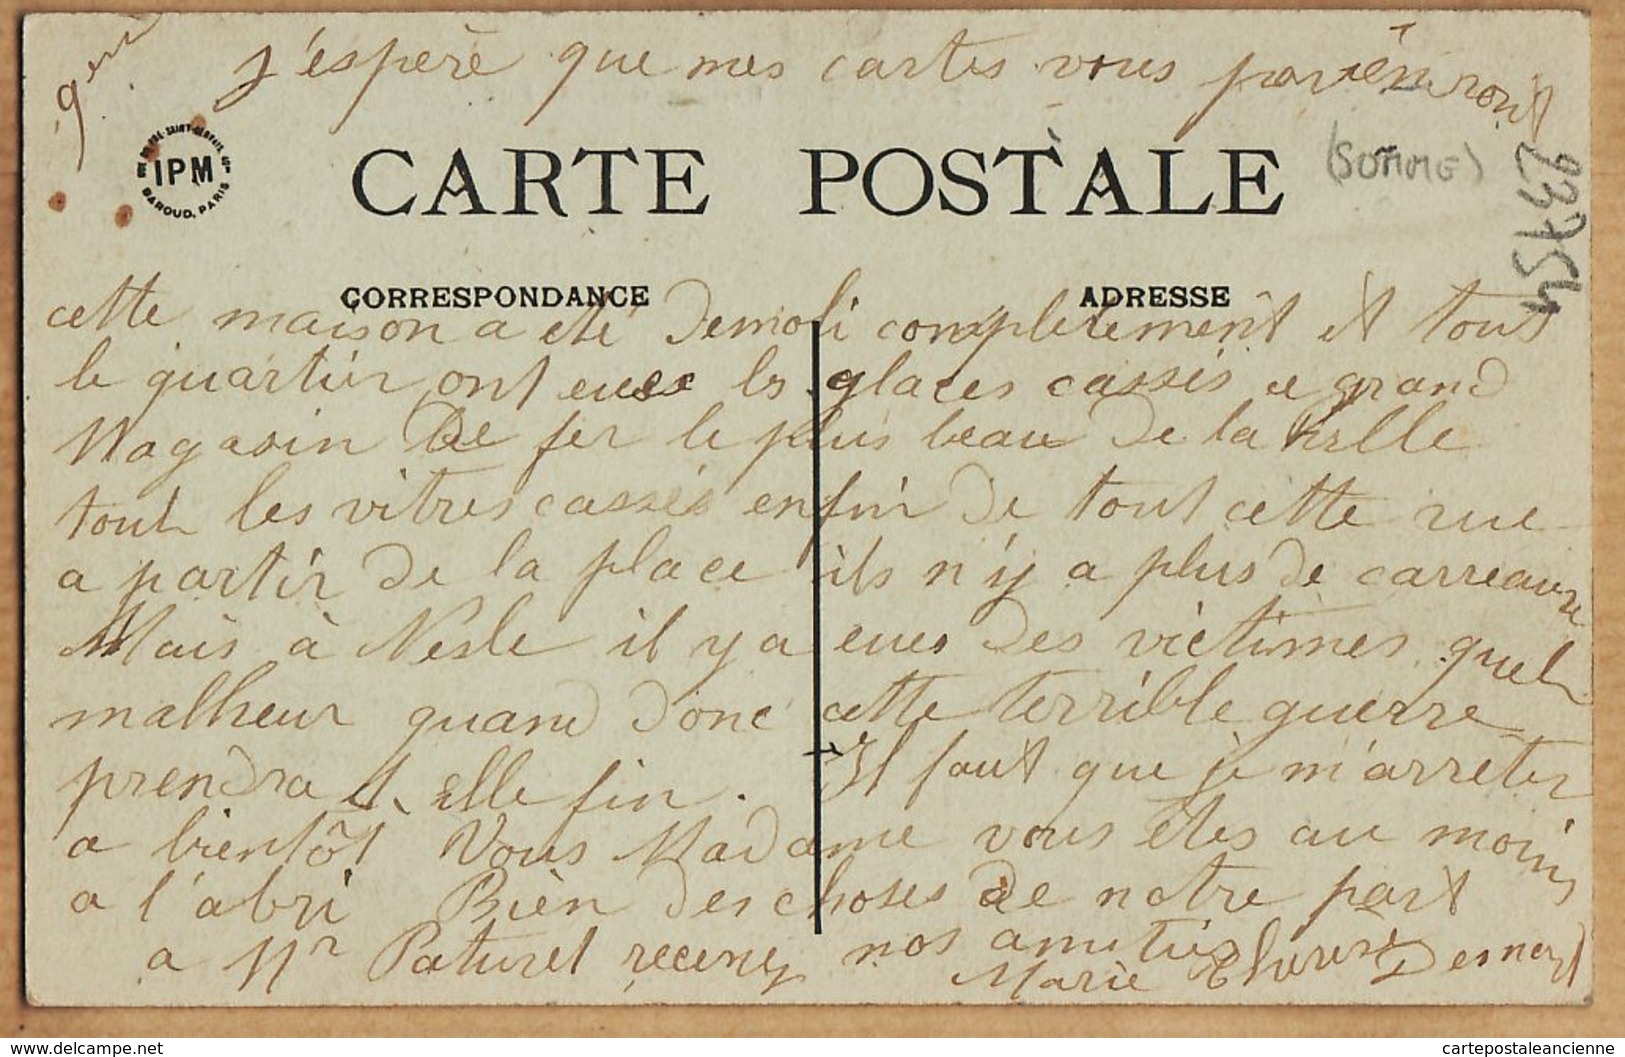 j'espère que mes cartes vous parviènront
CARTE POSTALE
(SOMME)
IPM
BAROUD, PARIS
CORRESPONDANCE
ADRESSE
cette maison a eté demoli complètement et tous
le quartier ont eues les glaces cassés ce grand
Magasin de fer le plus beau de la ville
tout les vitres cassés enfin de tout cette rue
a partir de la place ils n'y a plus de carreaux
Mais à Nesle il y a eues des victimes quel
malheur quand donc cette terrible guerre
prendra t elle fin. Il faut que je m'arreter
a bientôt Vous Madame vous êtes au moins
a l'abri Bièn des choses de notre part
a Mr Paturel recevez nos amitiés
Marie
delcampe.net
cartepostaleancienne